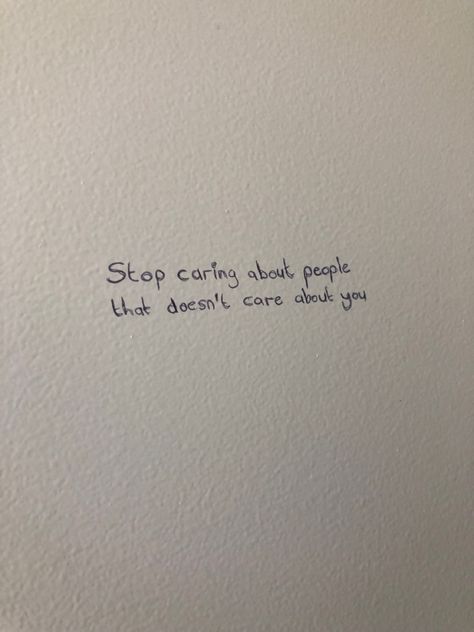 Stop caring about people
that doesn't care about you